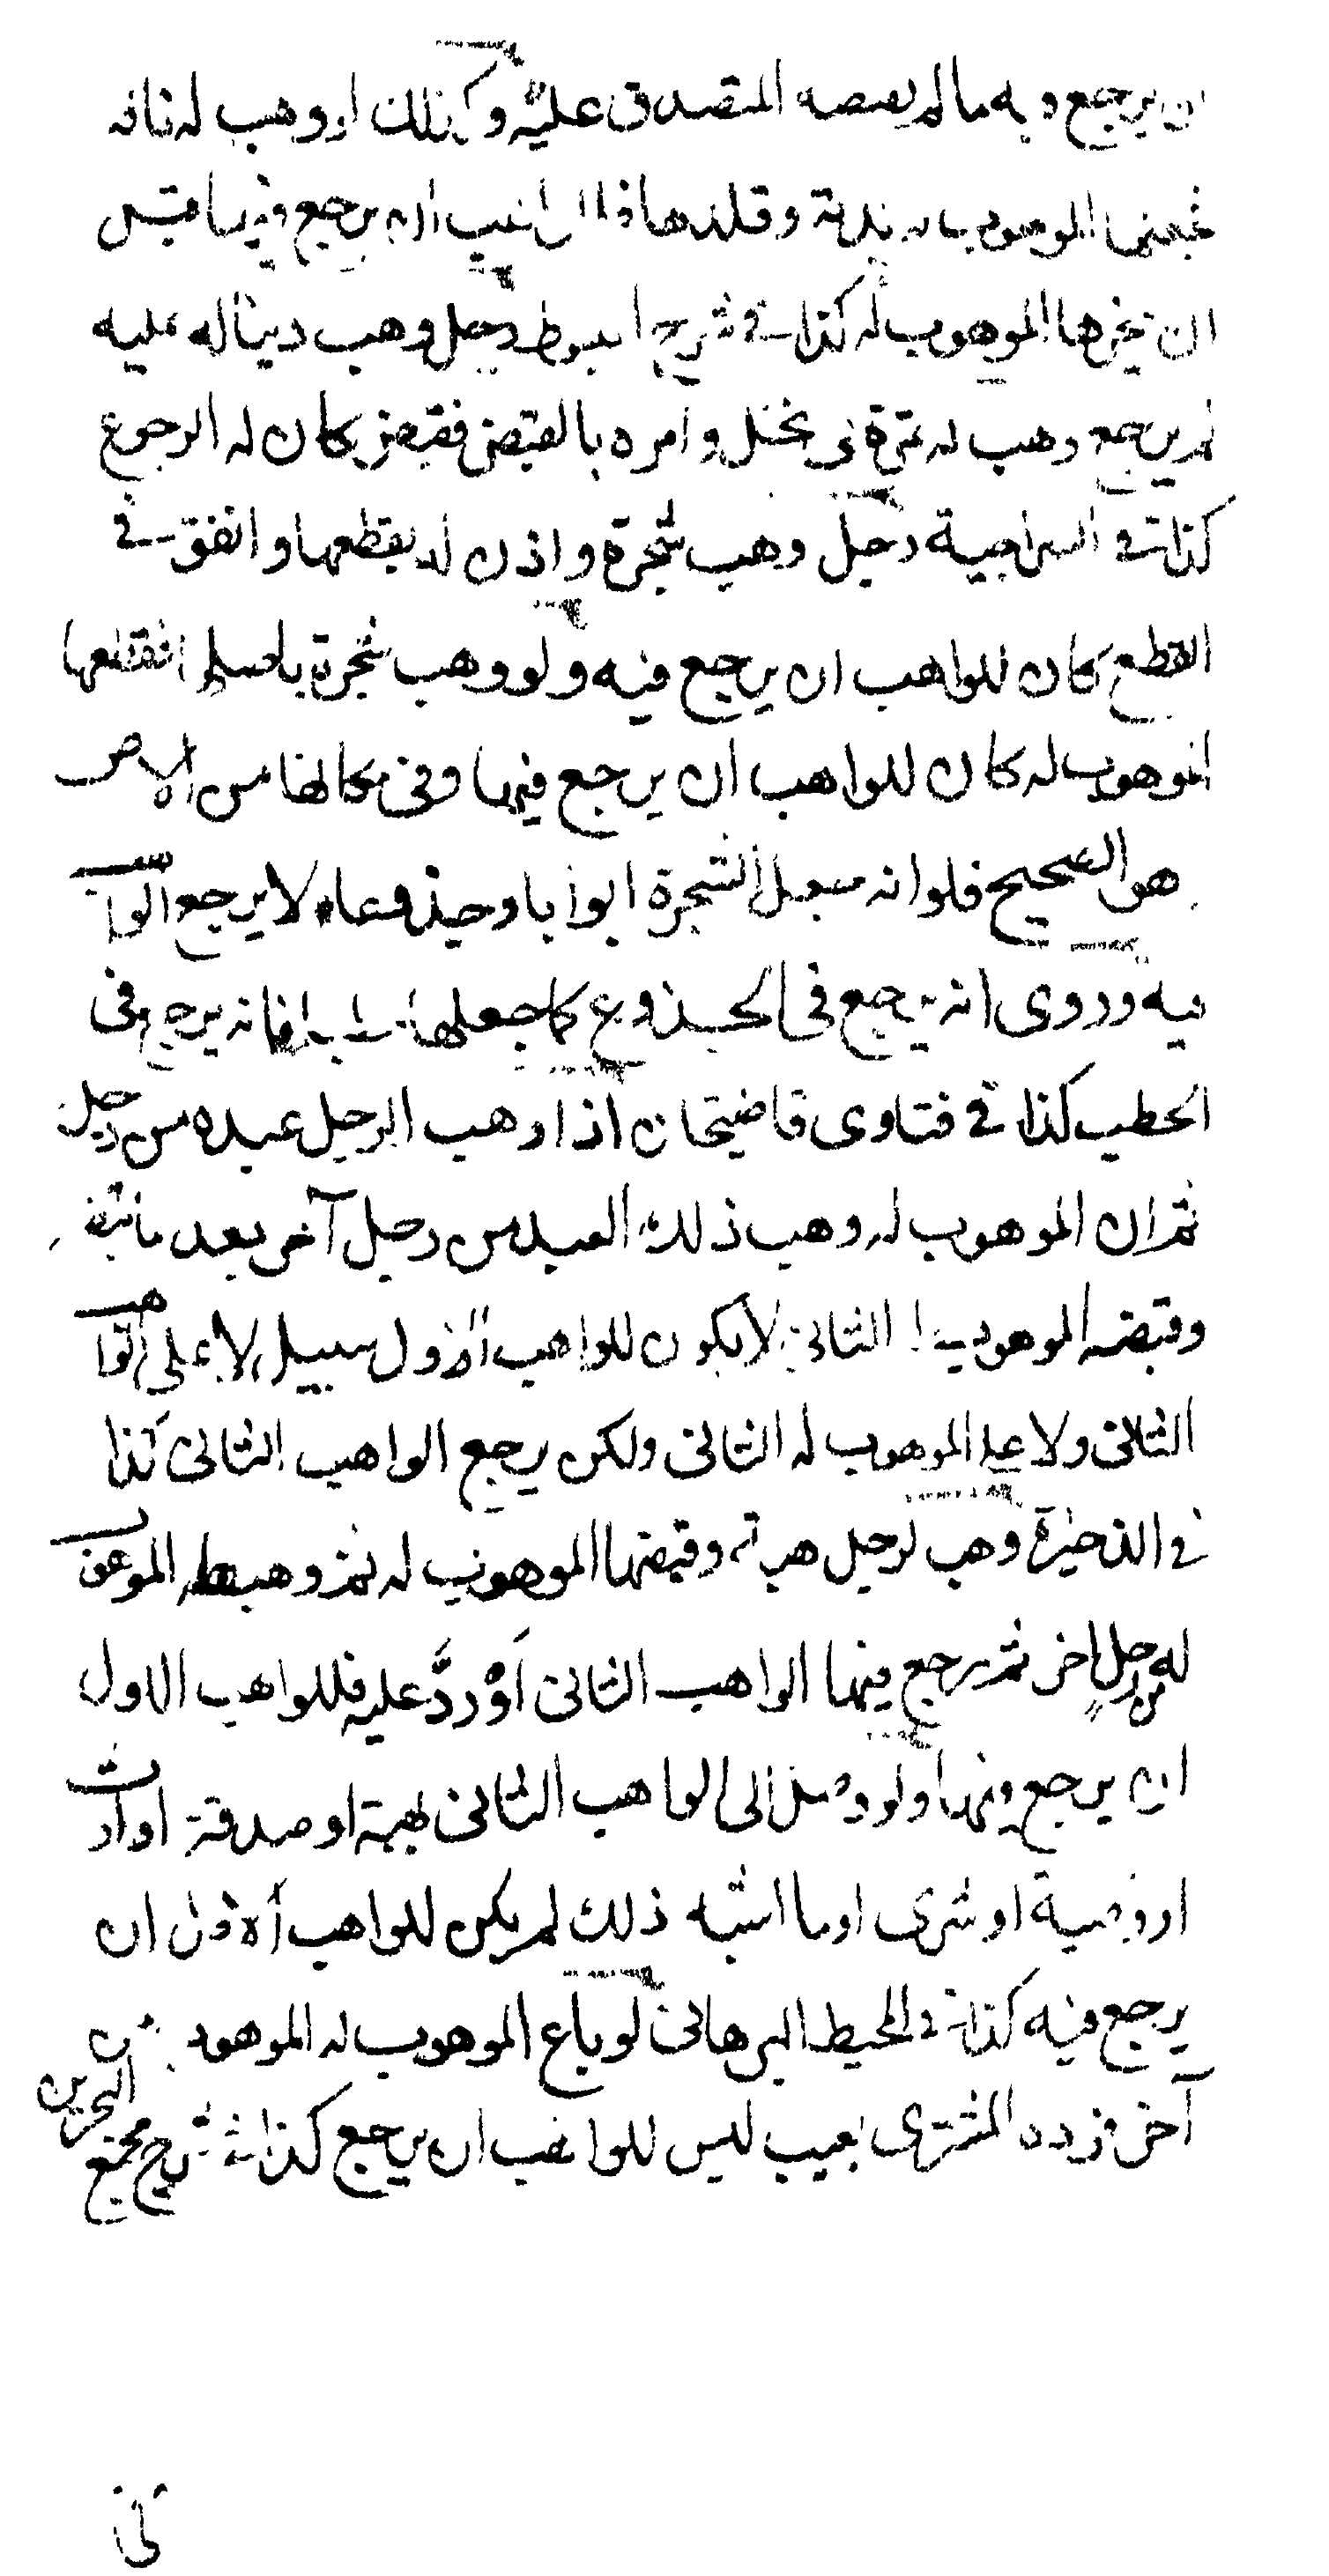 ان يرجع فيه ما لم يقبضه المتصدق عليه وكذلك لو وهب له ناقة
فجعلها الموهوب له بدنة وقلدها فان للواهب ان يرجع فيها قبل
ان ينحرها الموهوب له كذا في شرح المبسوط رجل وهب دينا له عليه
لم يرجع وهب له تمرة في نخل وامره بالقبض فقبض كان له الرجوع
كذا في السراجية رجل وهب شجرة واذن له بقطعها وانفق في
القطع كان للواهب ان يرجع فيه ولو وهب شجرة باصلها فقطعها
الموهوب له كان للواهب ان يرجع فيها وفي مكانها من الارض
هو الصحيح فلو انه جعل الشجرة ابوابا وجذوعا لا يرجع الواهب
فيه وروى انه يرجع في الجذوع كما جعلها حطبا فانه يرجع في
الحطب كذا في فتاوى قاضيخان اذا وهب الرجل عبده من رجل
ثم ان الموهوب له وهب ذلك العبد من رجل آخر بعد ما قبضه
وقبضه الموهوب له الثاني لا يكون للواهب الاول سبيل لا على الواهب
الثاني ولا على الموهوب له الثاني ولكن يرجع الواهب الثاني كذا
في الذخيرة وهب لرجل هبة وقبضها الموهوب له ثم وهبها الموهوب
له من رجل اخر ثم رجع فيها الواهب الثاني أَوْ رَدَّ عليه فللواهب الاول
ان يرجع فيها ولو وصل الى الواهب الثاني بهبة او صدقة او ارث
او وصية او شرى او ما اشبه ذلك لم يكن للواهب الاول ان
يرجع فيه كذا في المحيط البرهاني لو باع الموهوب له الموهوب من
آخر فرده المشترى بعيب ليس للواهب ان يرجع كذا في شرح مجمع البحرين